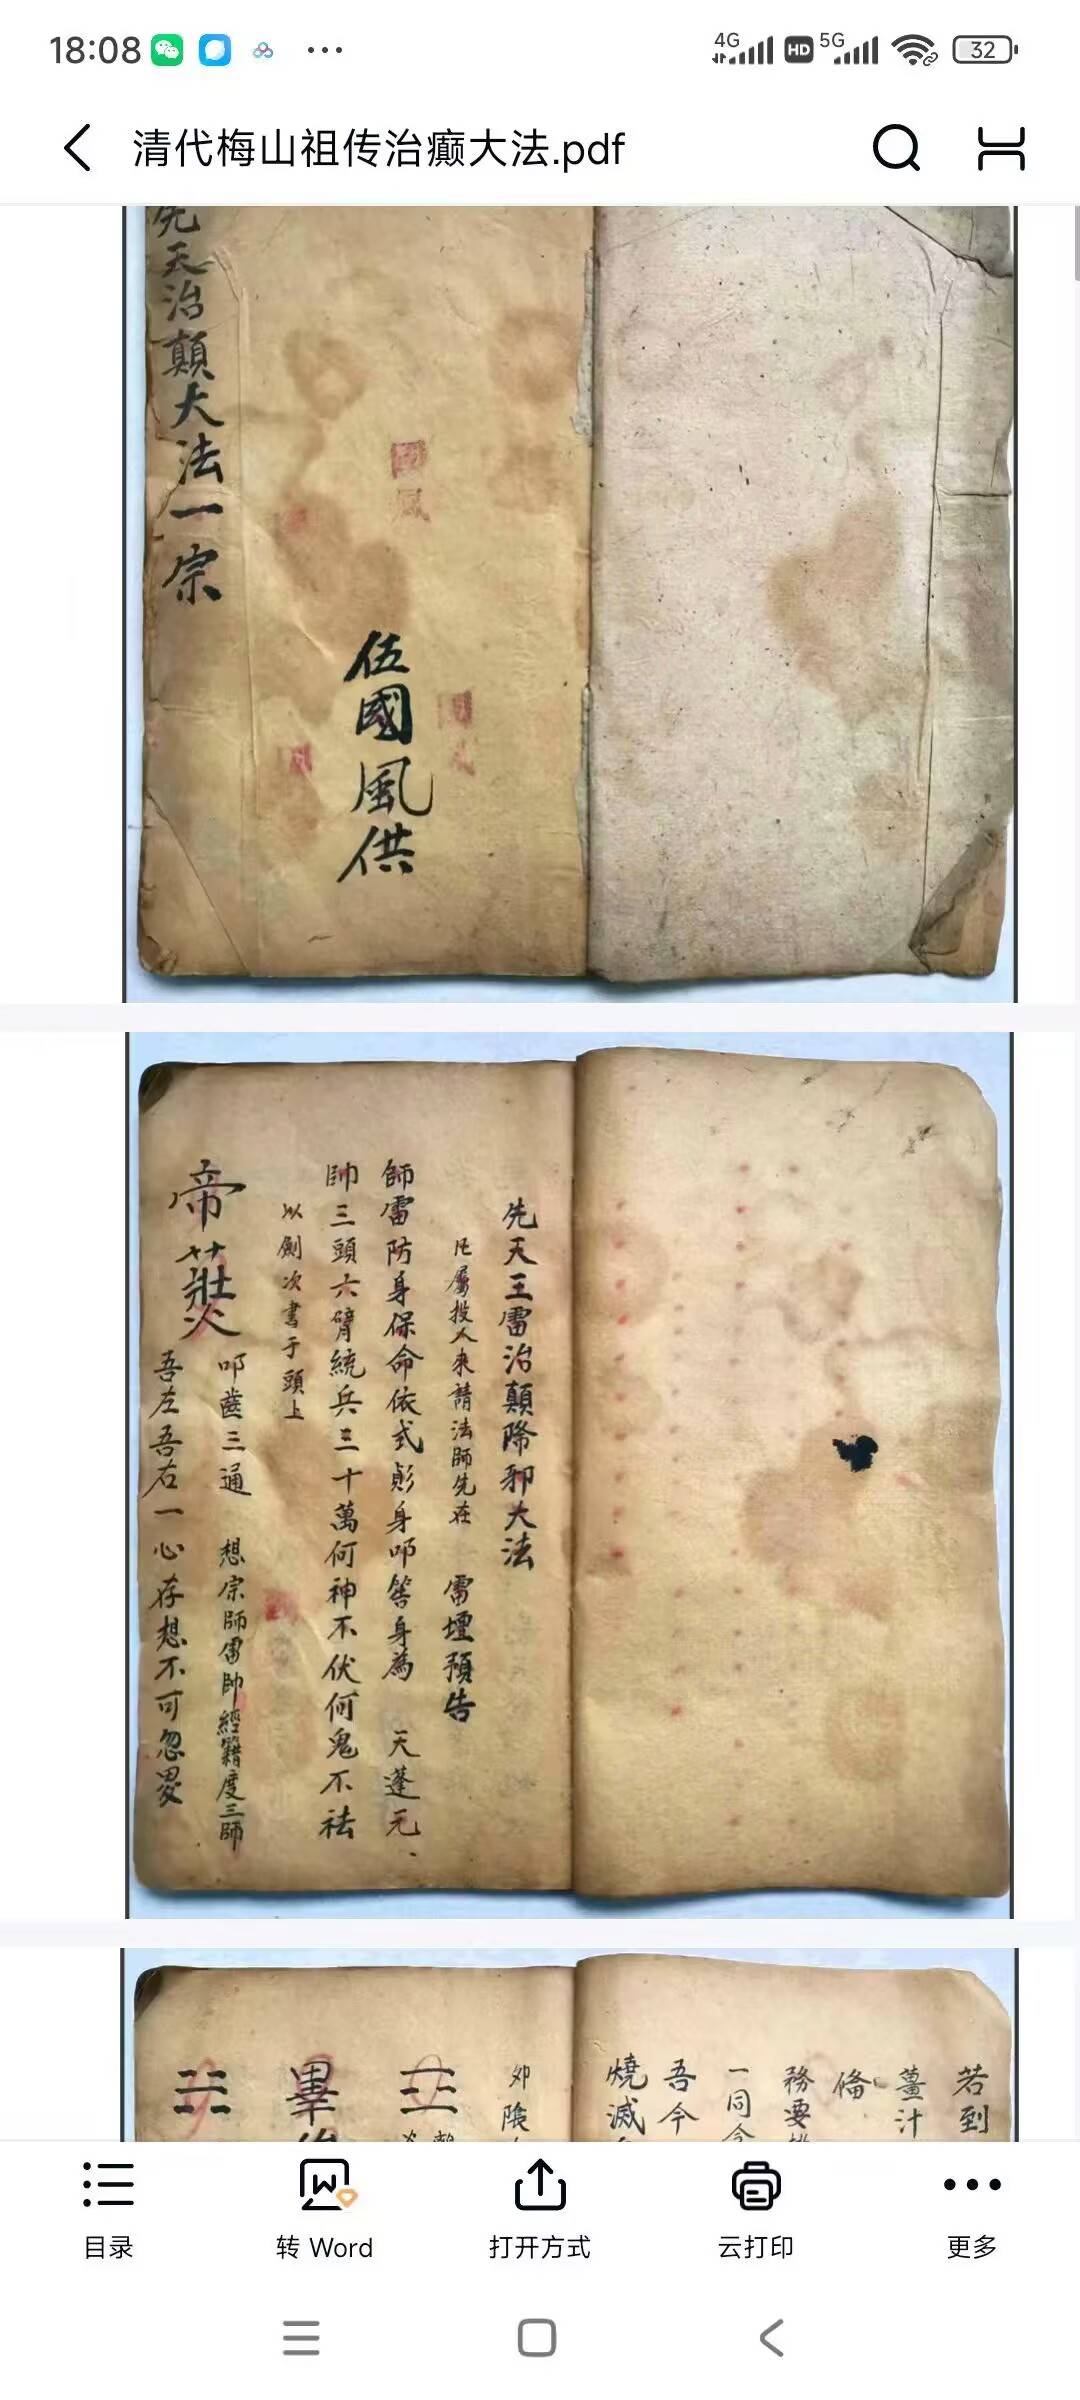 18:08
4G
HD
5G
32
清代梅山祖传治癫大法.pdf
先天治顛大法一宗
伍國風供
先天王雷治顛降邪大法
凡屬投人来請法師先在 雷壇預告
師雷防身保命依式 身叩 身為 天蓬元
帥三頭六臂統兵三十萬何神不伏何鬼不祛
以劍次書于頭上
帝
叩齒三通 想宗師雷帥經籍度三師
吾左吾右一心存想不可忽畧
若到
薑汁
俻
務要
一同
吾今
燒滅
卯陰
畢
目录
转 Word
打开方式
云打印
更多